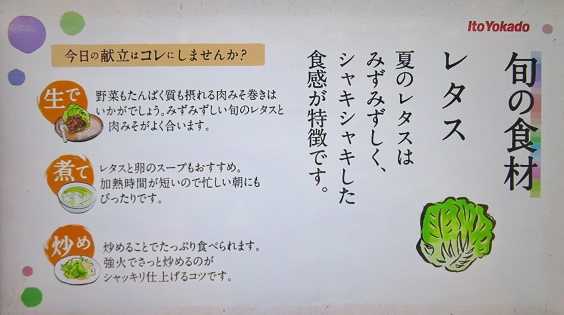 Ito Yokado
旬の食材
レタス
夏のレタスは
みずみずしく、
シャキシャキした
食感が特徴です。
今日の献立はコレにしませんか?
生で
野菜もたんぱく質も摂れる肉みそ巻きは
いかがでしょう。みずみずしい旬のレタスと
肉みそがよく合います。
煮て
レタスと卵のスープもおすすめ。
加熱時間が短いので忙しい朝にも
ぴったりです。
炒め
炒めることでたっぷり食べられます。
強火でさっと炒めるのが
シャッキリ仕上げるコツです。